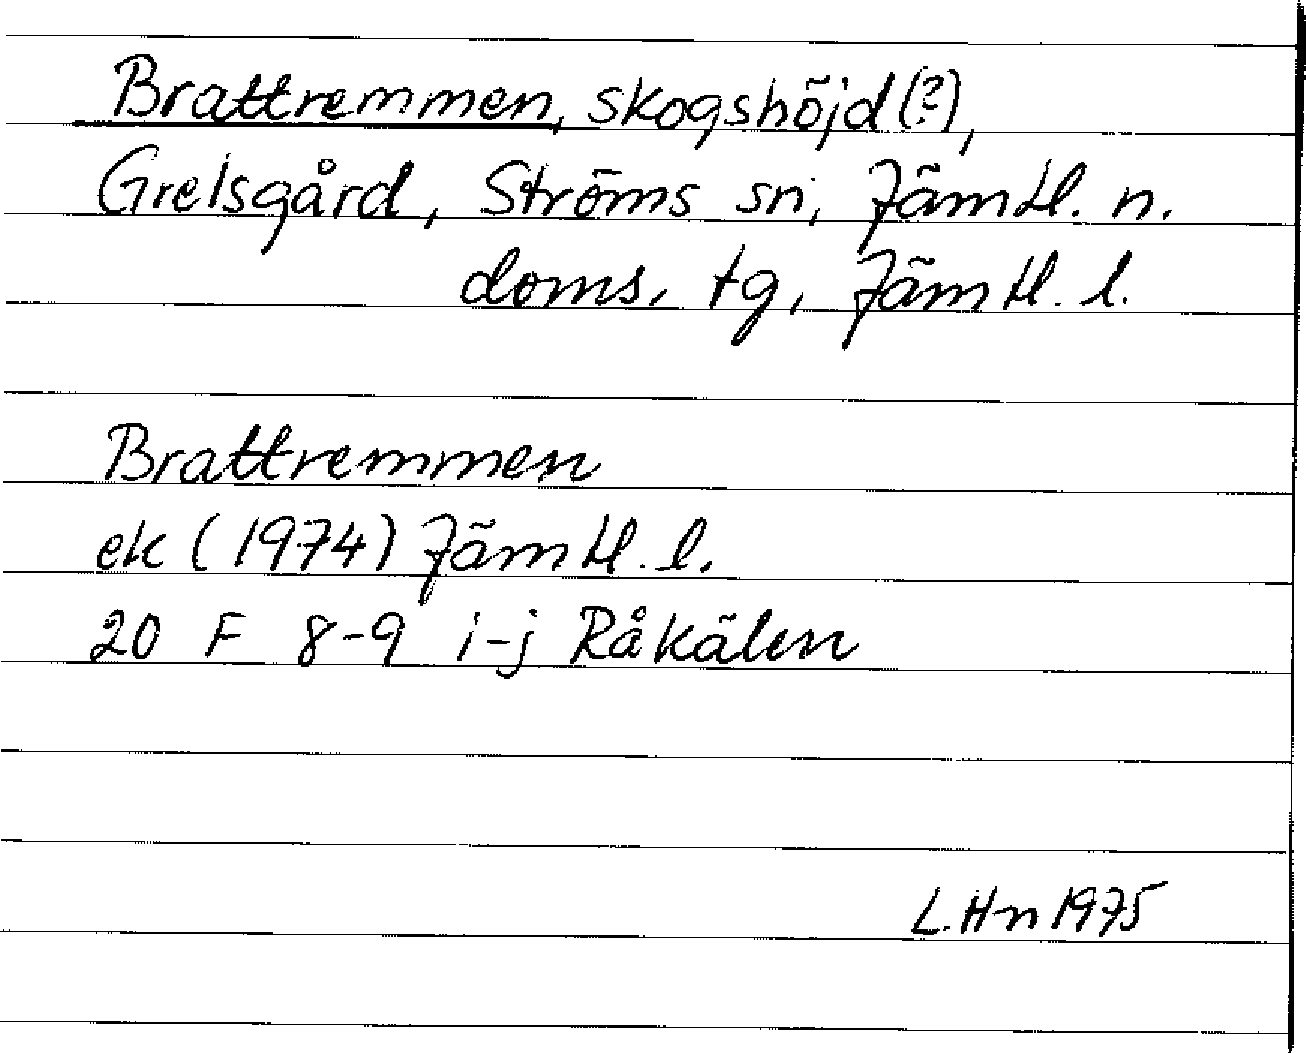 Brattremmen, skogshöjd(?),
Grelsgård, Ströms sn, Jämtl. n.
doms. tg, Jämtl. l.
Brattremmen
ek (1974) Jämtl. l.
20 F 8-9 i-j Råkälen
L.Hn 1975